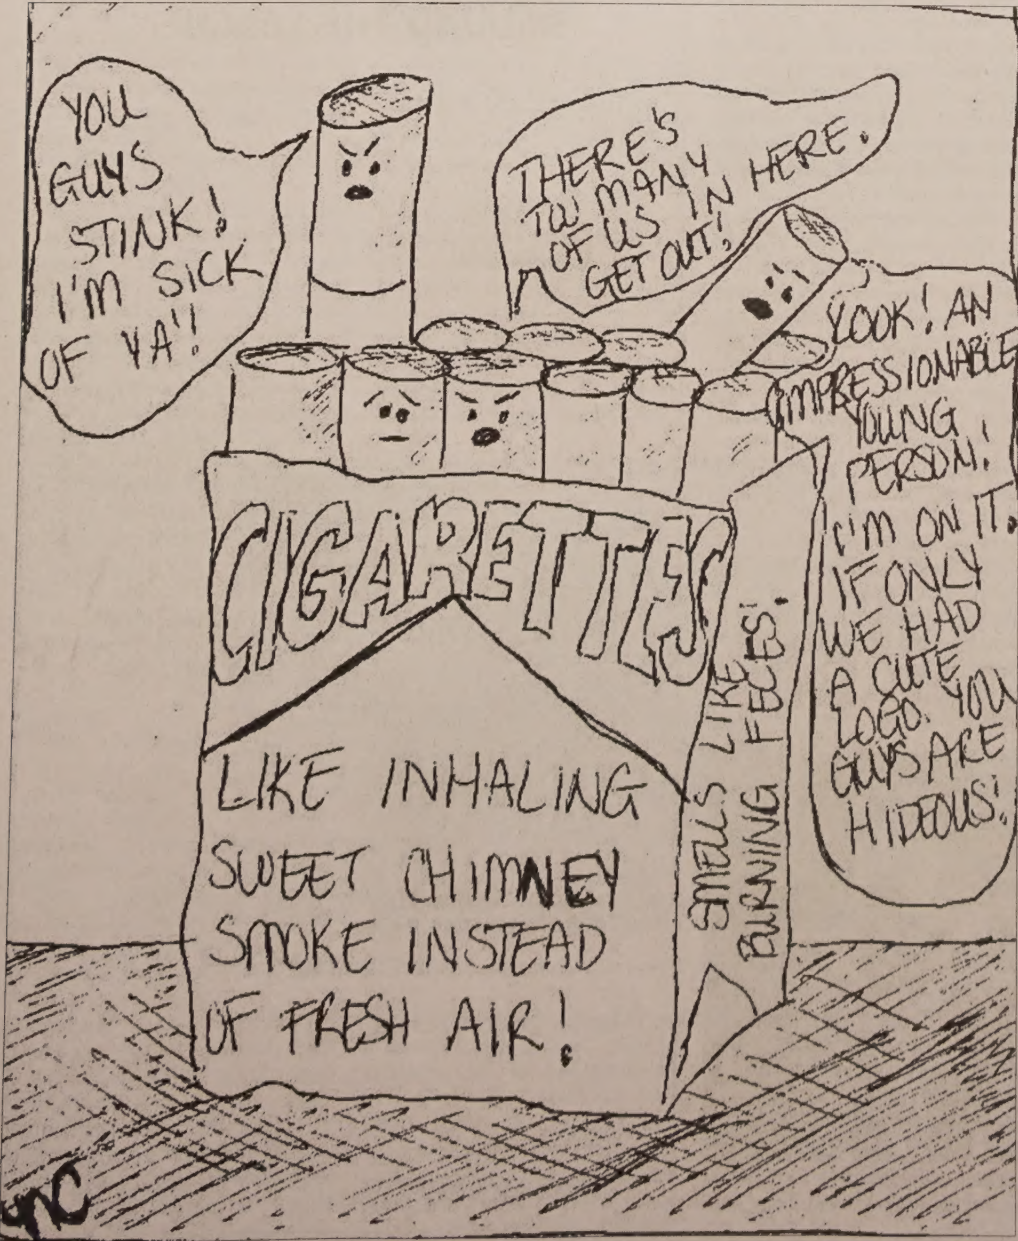 YOU
GUYS
STINK!
I'M SICK
OF YA'!
THERE'S
TOO MANY
OF US IN HERE.
GET OUT!
LOOK! AN
IMPRESSIONABLE
YOUNG
PERSON!
I'M ON IT.
IF ONLY
WE HAD
A CUTE
LOGO. YOU
GUYS ARE
HIDEOUS!
CIGARETTES
LIKE INHALING
SWEET CHIMNEY
SMOKE INSTEAD
OF FRESH AIR!
SMELLS LIKE
BURNING FECES!